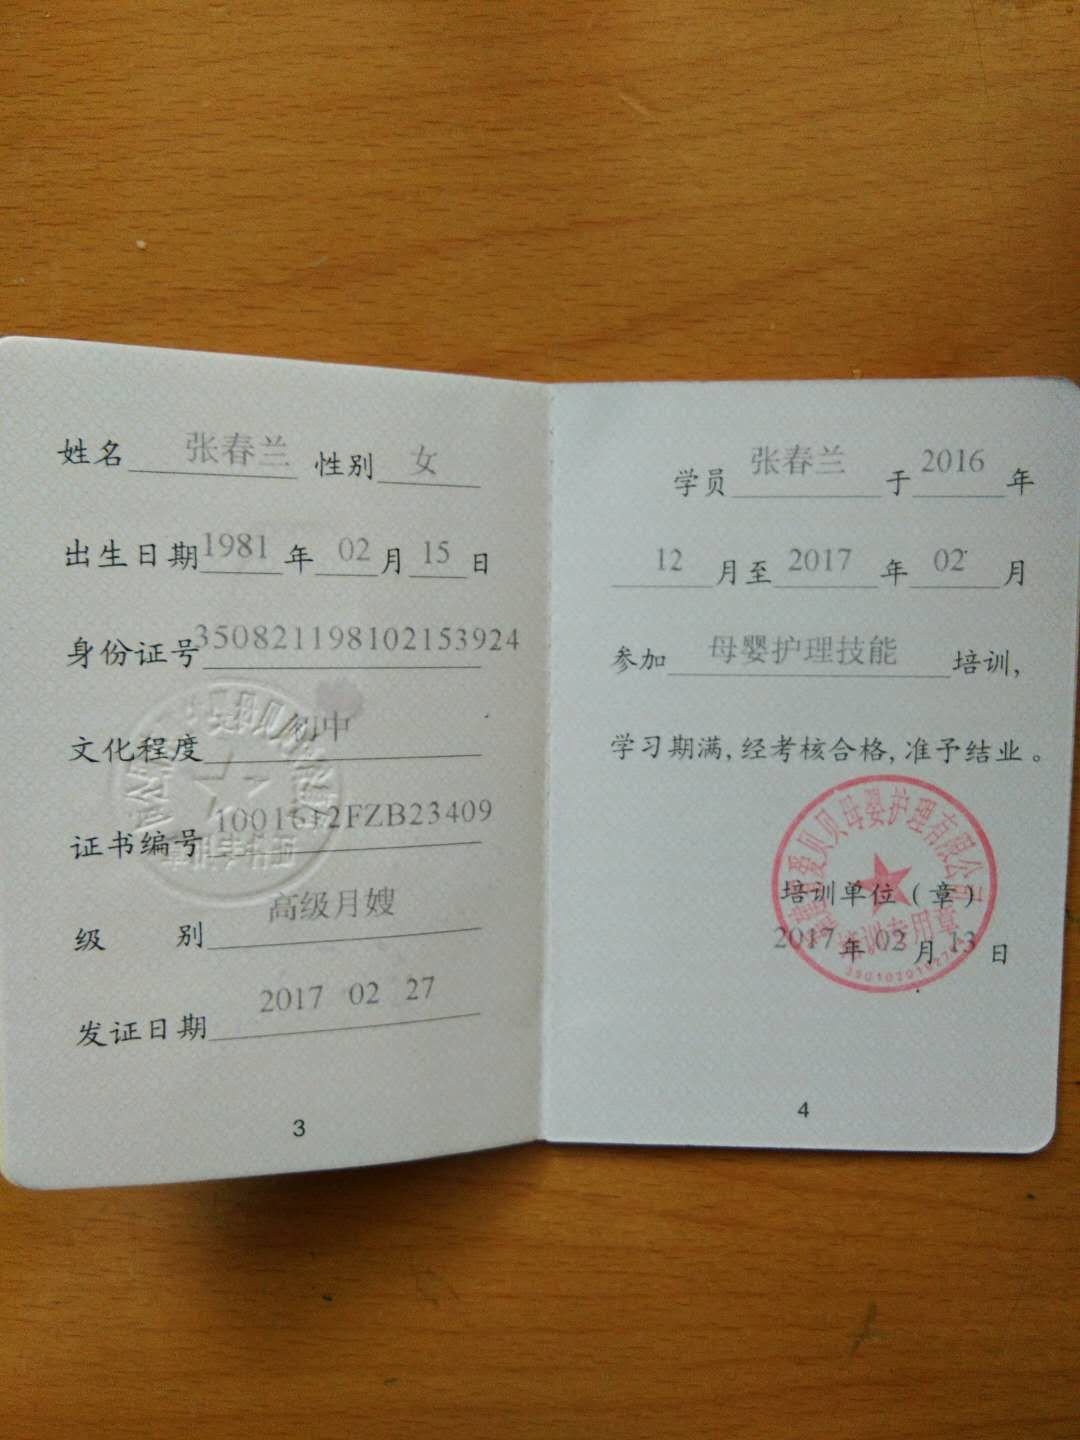 姓名 张春兰 性别 女
出生日期 1981 年 02 月 15 日
身份证号 350821198102153924
文化程度 初中
证书编号 1001612FZB23409
级 别 高级月嫂
发证日期 2017 02 27
3
学员 张春兰 于 2016 年
12 月至 2017 年 02 月
参加 母婴护理技能 培训,
学习期满,经考核合格,准予结业。
爱贝贝母婴护理有限公司
培训单位(章)
2017 年 02 月 13 日
培训专用章
4